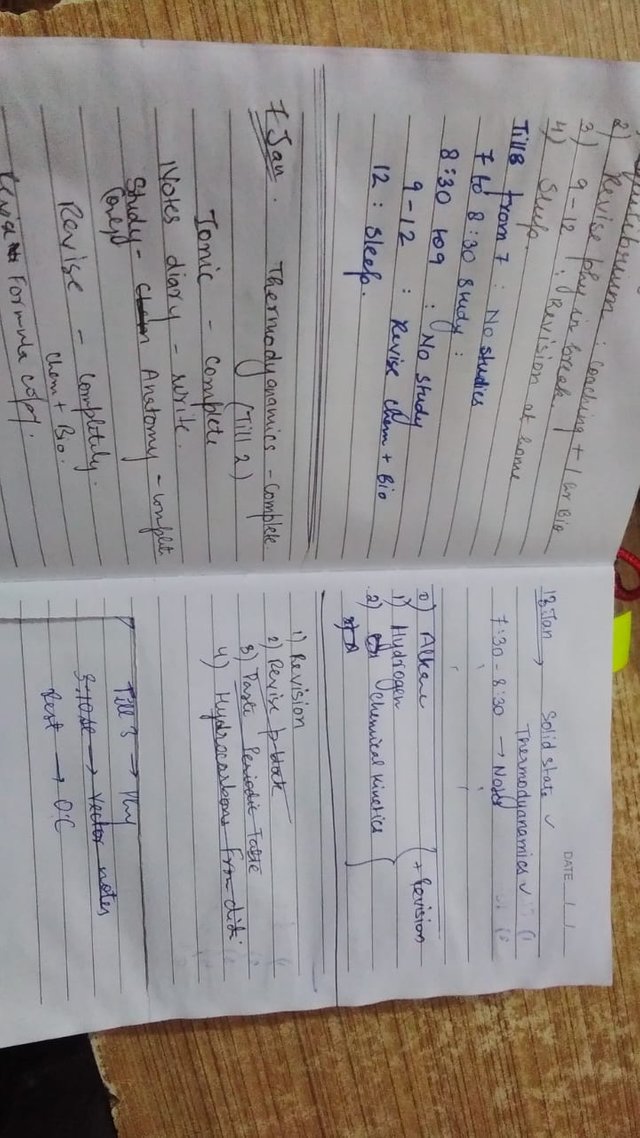 2) Revise phy in break.
3) 9-12 : Revision at home
4) Sleep.
Till 8 from 7 : No studies
7 to 8:30 study :
8:30 to 9 : No study
9-12 : Revise chem + Bio
12 : Sleep.
7 Jan. Thermodynamics - Complete
(Till 2)
Ionic - Complete
Notes diary - write.
Study - Anatomy - complete
Revise - Completely.
Chem + Bio.
Revise Formula copy.
DATE / /
13 Jan → Solid state ✓
Thermodyanamics ✓
7:30 - 8:30 → Notes
0) Alkene
1) Hydrogen
2) Chemical kinetics
+ Revision
1) Revision
2) Revise p-block
3) Paste Periodic Table
4) Hydrocarbons from didi
Till 3 → Phy
→ Vector notes
Rest → O.C